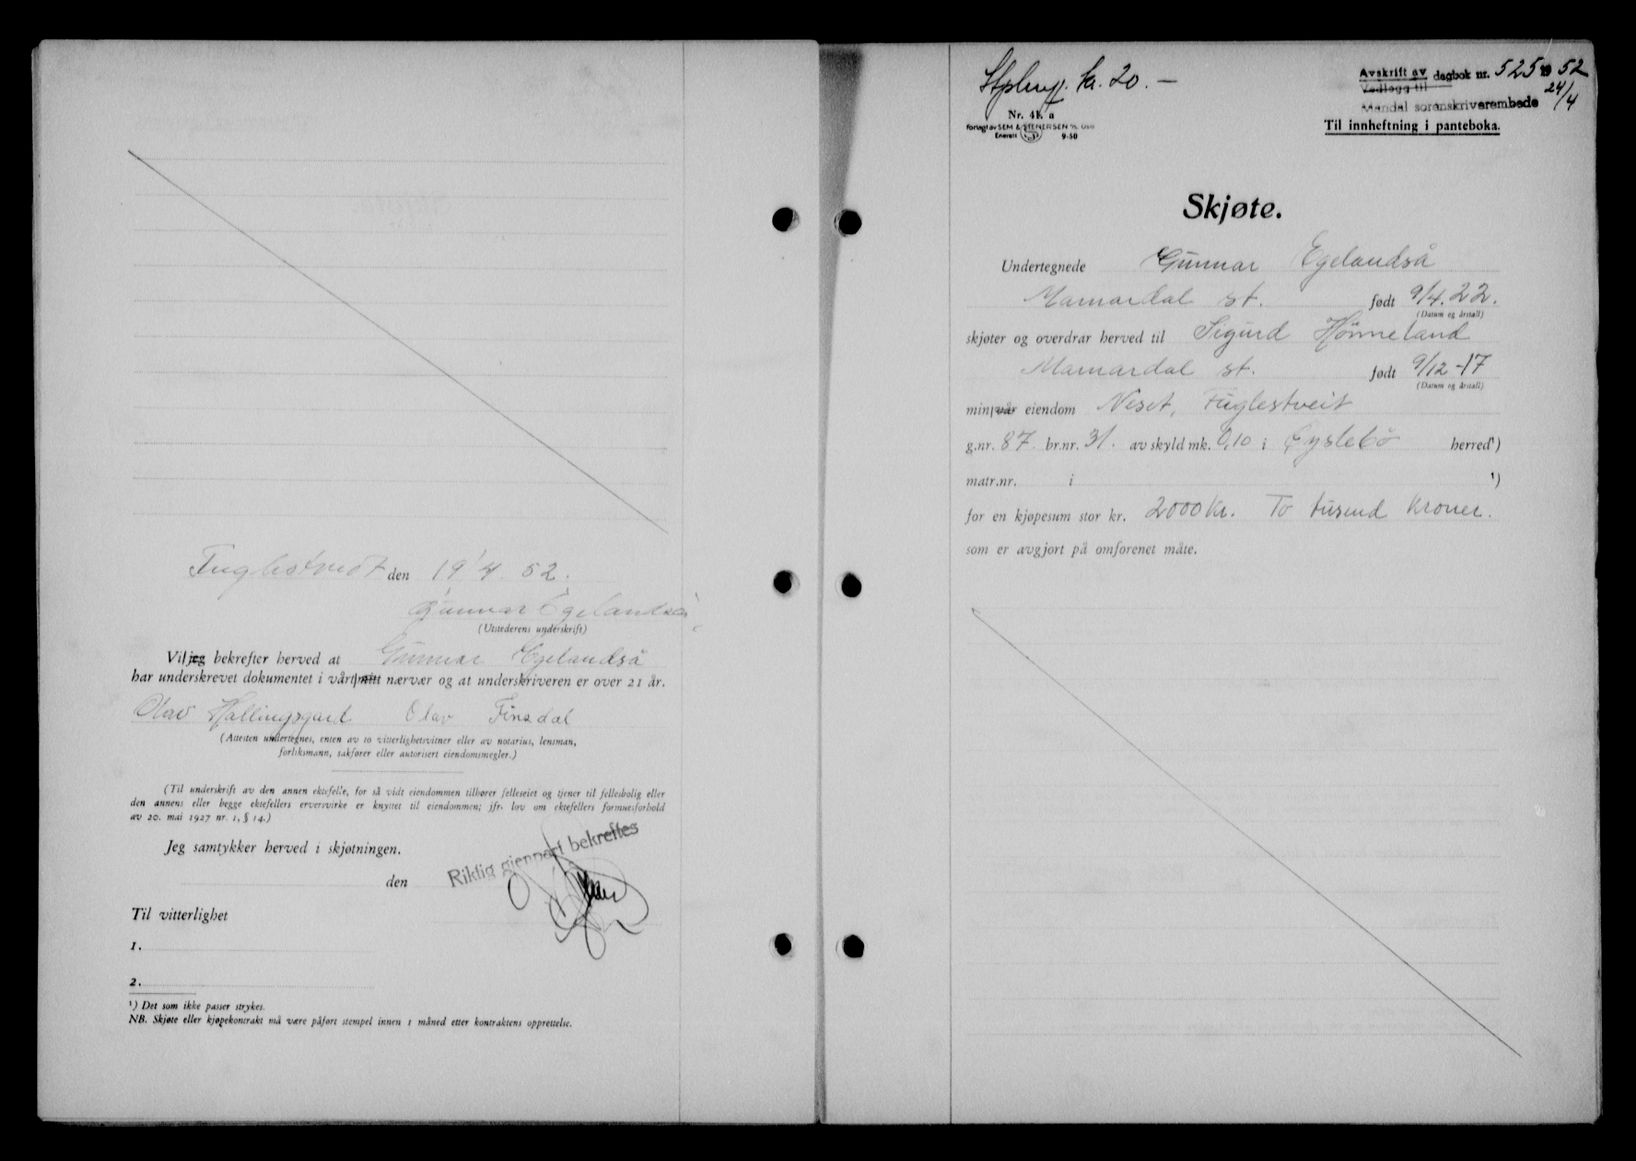 Fuglestveit den 19/4 52.
Gunnar Egelandså
(Utstederens underskrift)
Vi/jeg bekrefter herved at Gunnar Egelandså
har underskrevet dokumentet i vårt/mitt nærvær og at underskriveren er over 21 år.
Olav Hallingsgard Olav Finsdal
(Attesten undertegnes, enten av to vitterlighetsvitner eller av notarius, lensman,
forliksmann, sakfører eller autorisert eiendomsmegler.)
(Til underskrift av den annen ektefelle, for så vidt eiendommen tilhører felleseiet og tjener til fellesbolig eller
den annens eller begge ektefellers ervervsvirke er knyttet til eiendommen; jfr. lov om ektefellers formuesforhold
av 20. mai 1927 nr. 1, § 14.)
Jeg samtykker herved i skjøtningen.
den
Riktig gjenpart bekreftes
Til vitterlighet
1.
2.
¹) Det som ikke passer strykes.
NB. Skjøte eller kjøpekontrakt må være påført stempel innen 1 måned etter kontraktens opprettelse.
kr. 20.—
Nr. 4 a
Forlagt av SEM & STENERSEN A/S, Oslo
Enerett 9-50
Avskrift av dagbok nr. 525 1952
Vedlegg til 24/4
Mandal sorenskriverembede
Til innheftning i panteboka.
Skjøte.
Undertegnede Gunnar Egelandså
Marnardal st. født 9/4.22.
(Datum og årstall)
skjøter og overdrar herved til Sigurd Hønneland
Marnardal st. født 9/12-17
(Datum og årstall)
min/vår eiendom Neset, Fuglestveit
g.nr. 87 br.nr. 31. av skyld mk. 0,10 i Øyslebø herred¹)
matr.nr. i ¹)
for en kjøpesum stor kr. 2000 kr. To tusend kroner.
som er avgjort på omforenet måte.